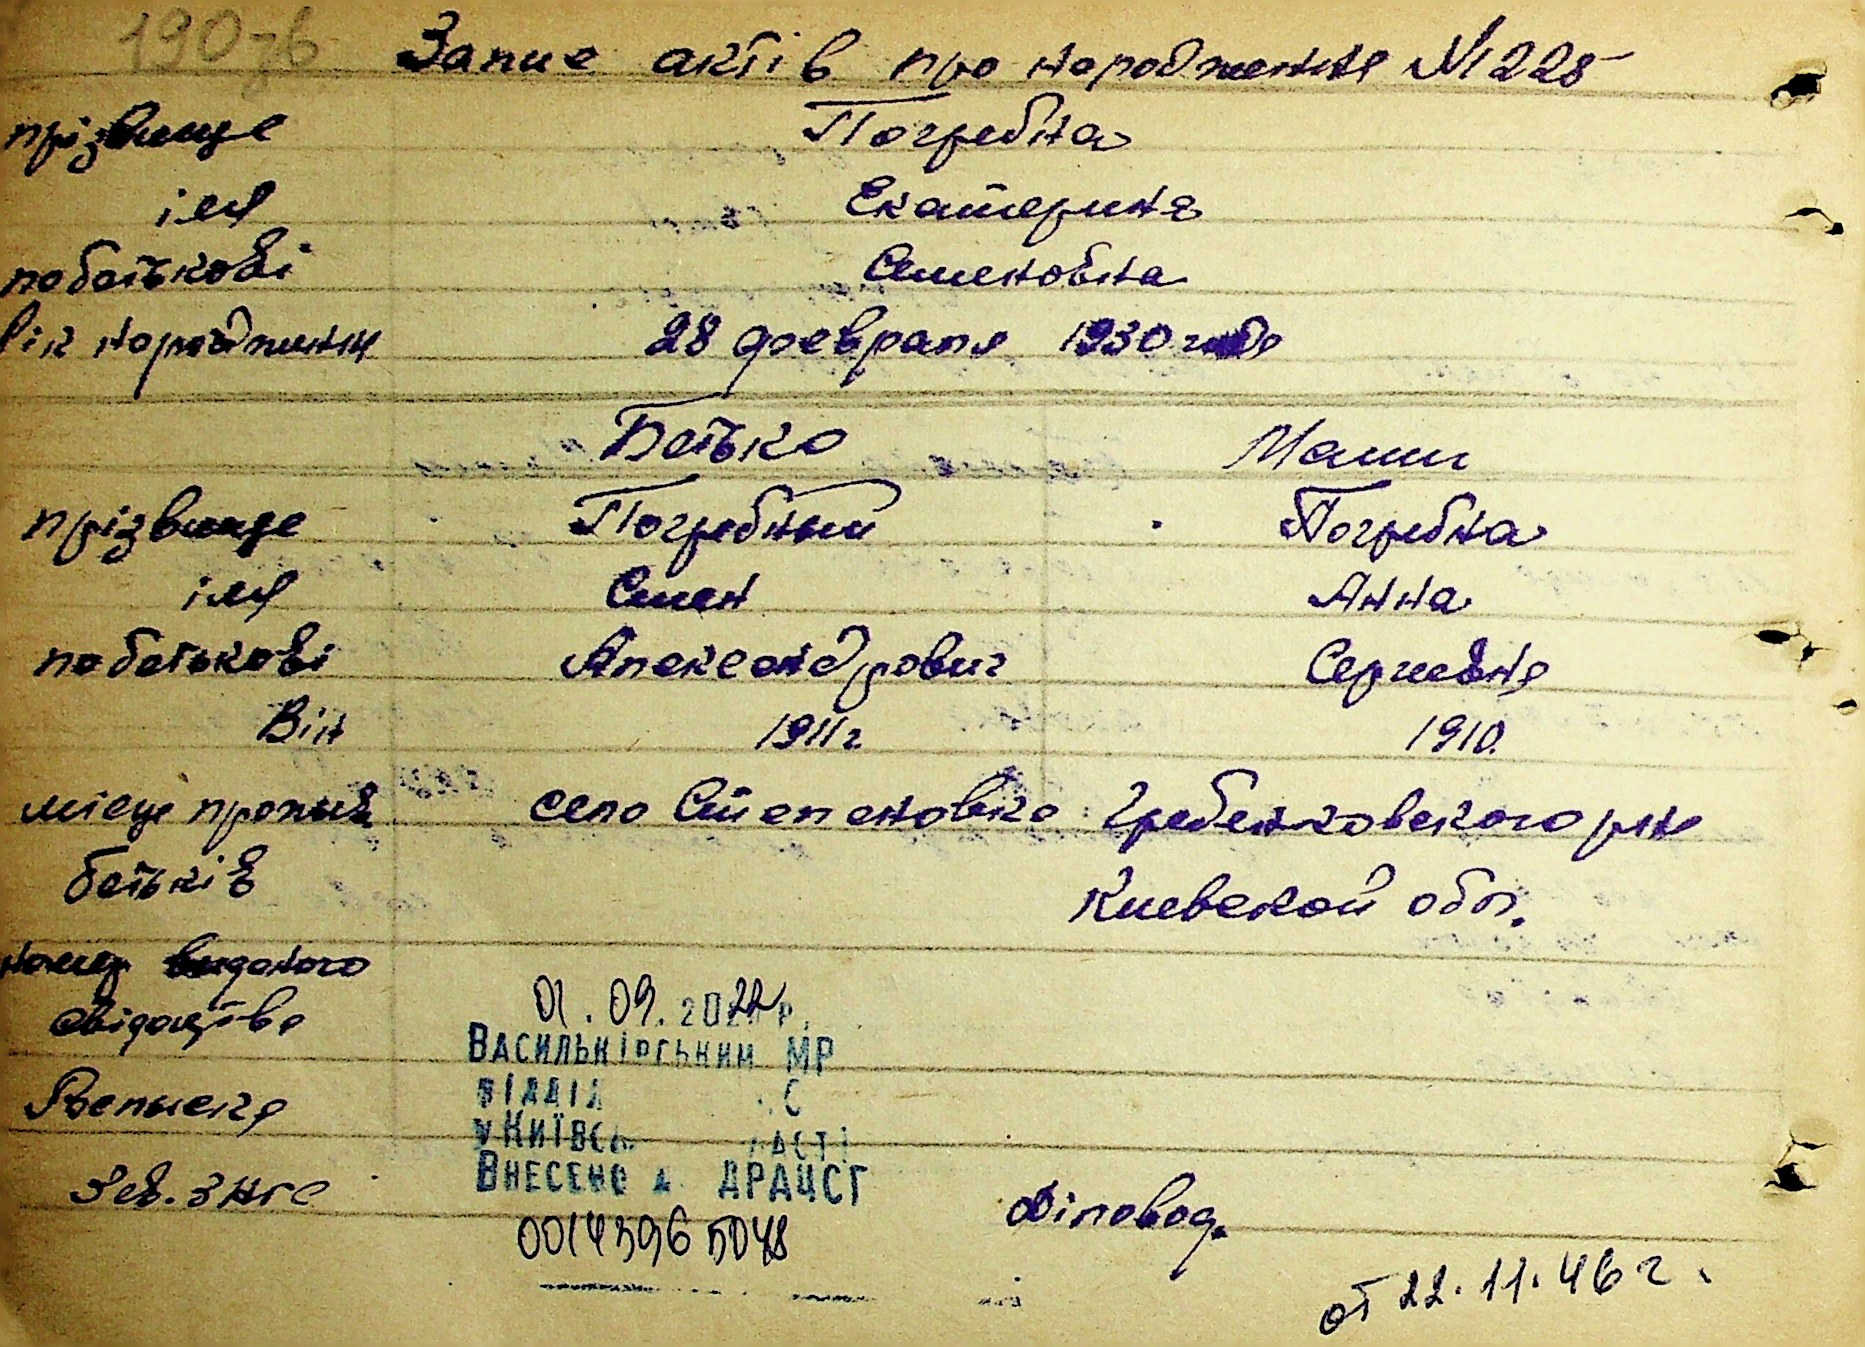 190зв
Запис актів про народження № 225
прізвище Погребна
імя Екатерина
побатькові Семеновна
вік народження 28 февраля 1930 года
Батько Мати
прізвище Погребный Погребна
імя Семен Анна
побатькові Александрович Сергиевна
Вік 1911 г. 1910.
місце прожив село Степановка Гребенковского р-на
батьків Киевской обл.
номер виданого
свідоцтва
01.09.2022 р.
ВАСИЛЬКІВСЬКИЙ МР
ВІДДІЛ С
У КИЇВСЬ ЛАСТІ
Росписка
ВНЕСЕНО Д ДРАЦСГ
Зав. ЗАГС Діловод.
00143965048
от 22.11.46 г.